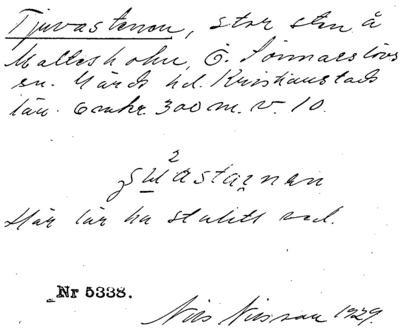 Tjuvastenen, stor sten å
Maltesholm, Ö. Sönnarslövs
sn. Gärds hd. Kristianstads
län. Omkr. 300 m. v. 10.
2
Här lär ha stulits
Nr 5338.
Nils Nilsson 1929